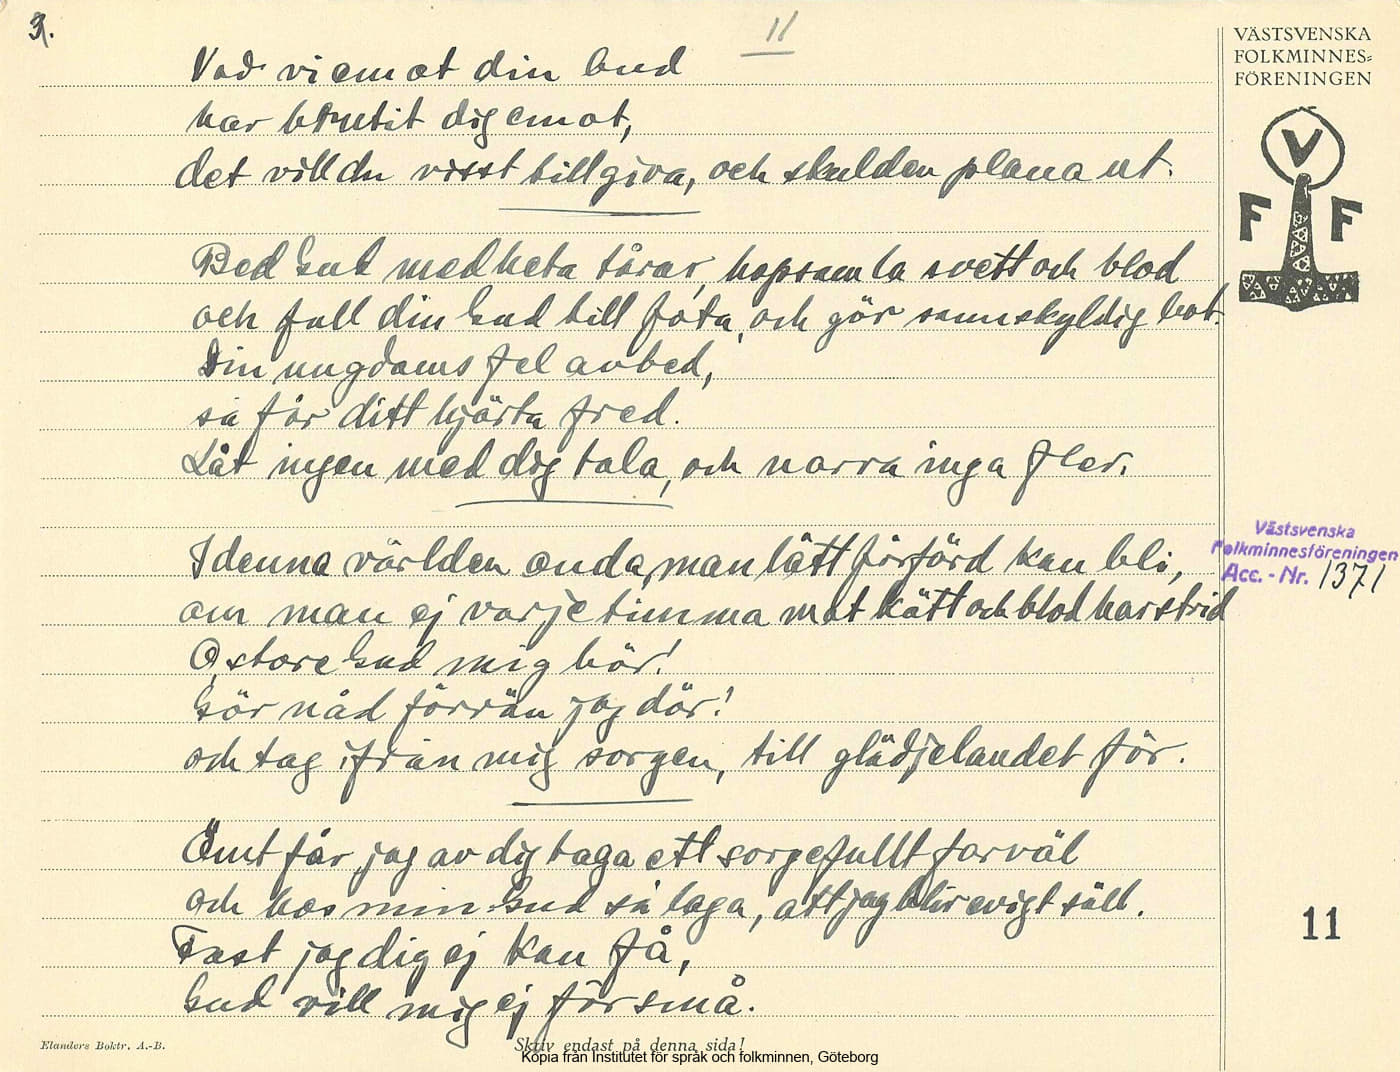 3.
11
Vad vi emot din bud
har brutit dig emot,
det vill du visst tillgiva, och skulden plana ut.
Bed Gud med heta tårar, hopsamla svett och blod
och fall din Gud till fota, och gör sannskyldig bot.
Din ungdoms fel avbed,
så får ditt hjärta fred.
Låt ingen med dig tala, och narra inga fler.
I denna världen onda, man lätt förförd kan bli,
om man ej varje timma mot kött och blod har strid
O, store Gud mig hör!
Gör nåd förrän jag dör!
och tag ifrån mig sorgen, till glädjelandet för.
Ömt får jag av dig taga ett sorgefullt farväl
och hos min Gud så laga, att jag blir evigt säll.
Fast jag dig ej kan få,
Gud vill mig ej försmå.
VÄSTSVENSKA
FOLKMINNES=
FÖRENINGEN
V
F F
Västsvenska
Folkminnesföreningen
Acc. - Nr. 1371
11
Elanders Boktr. A.-B.
Skriv endast på denna sida!
Kopia från Institutet för språk och folkminnen, Göteborg